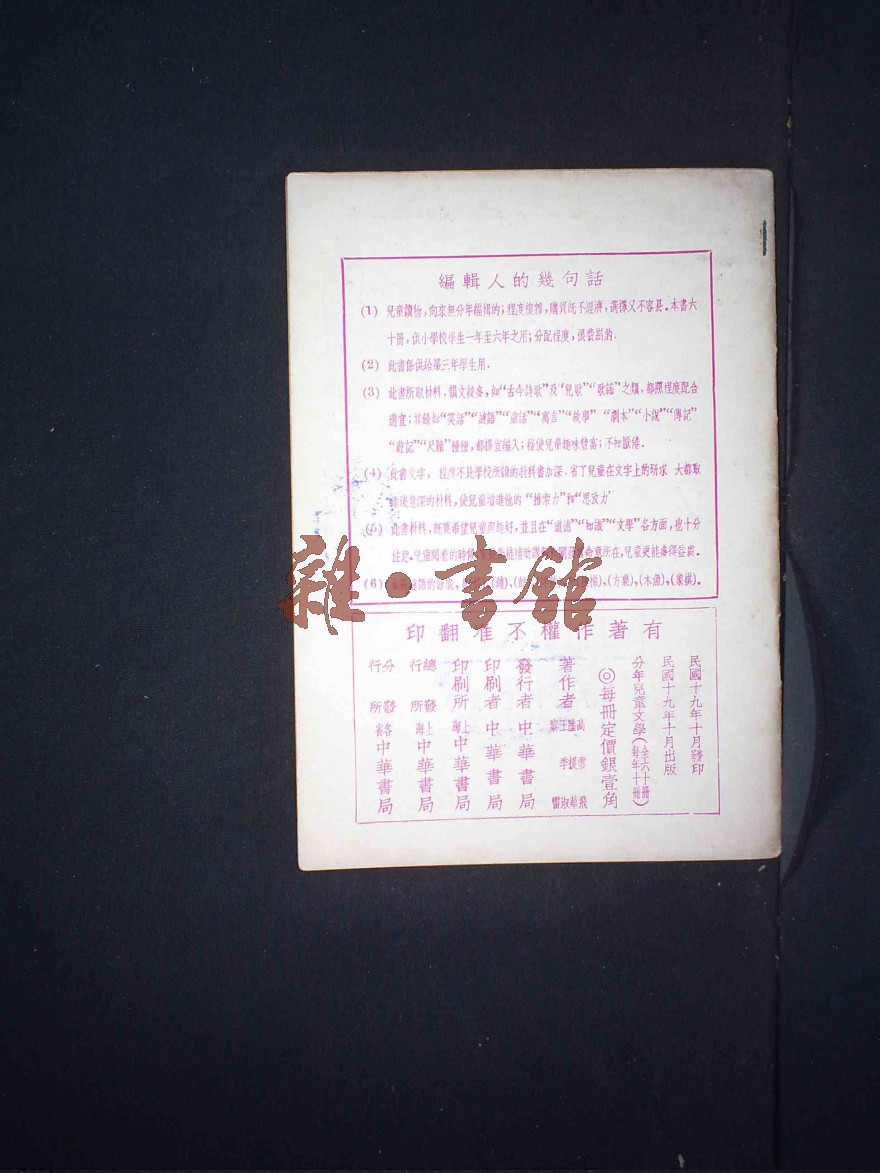 編輯人的幾句話
(1) 兒童讀物，向來無分年編輯的；程度複雜，購買既不經濟，選擇又不容易。本書六
十冊，供小學校學生一年至六年之用；分配程度，很費斟酌。
(2) 此書係供給第三年學生用。
(3) 此書所取材料，韻文較多，如“古今詩歌”及“兒歌”“歌謠”之類，都照程度配合
適宜；其餘如“笑話”“謎語”“童話”“寓言”“故事”“劇本”“小說”“傳記”
“遊記”“尺牘”種種，都擇宜編入；藉使兒童趣味豐富；不知厭倦。
(4) 此書文字，程度不比學校所讀的教科書加深，省了兒童在文字上的研求 大都取
淺意深的材料，使兒童增進他的“推索力”和“思攷力”
(5) 此書材料，既要希望兒童興趣好，並且在“道德”“知識”“文學”各方面，也十分
注意。兒童閱看的時候，命意所在，兒童更能多得益處。
(6) 本冊謎語的謎底，(鐘)，(方桌)，(木魚)，(象棋)。
雜·書館
有著作權不准翻印
民國十九年十月發印
民國十九年十月出版
分年兒童文學（全六十冊 每年十冊）
◎每冊定價銀壹角
著作者
發行者 中華書局
印刷者 中華書局
印刷所 上海中華書局
總發行所 上海中華書局
分發行所 各省中華書局